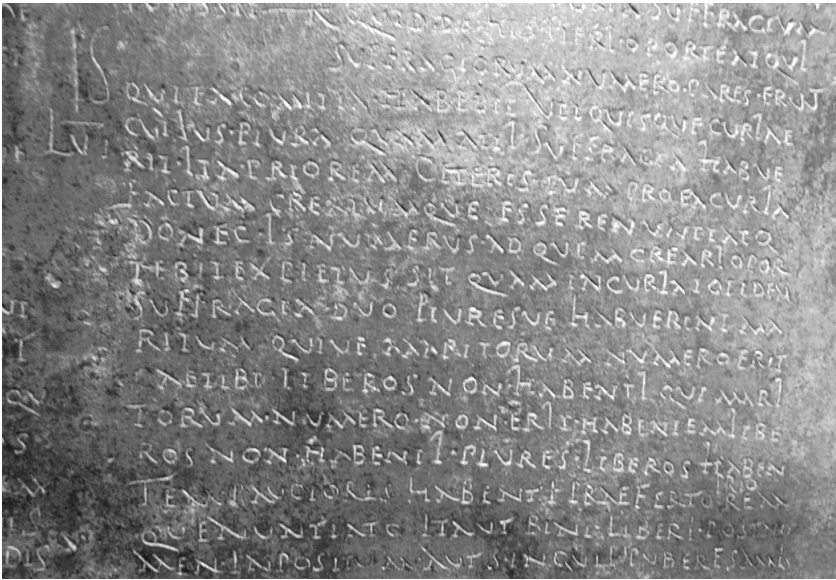 SUFFRAGIUM
QUID DE HIS FIERI OPORTEAT QUI
SUFFRAGIORUM NUMERO PARES ERUNT
IS
QUI EA COMITIA HABEBIT UTI QUISQUE CURIAE
LVI CUIUS PLURA QUAM ALII SUFFRAGIA HABUE
RIT ITA PRIOREM CETERIS EUM PRO EA CURIA
FACTUM CREATUMQUE ESSE RENUNTIATO
DONEC IS NUMERUS AD QUEM CREARI OPOR
TEBIT EXPLETUS SIT QUAM IN CURIA TOTIDEM
SUFFRAGIA DUO PLURESVE HABUERINT MA
RITUM QUIVE MARITORUM NUMERO ERIT
CAELIBI LIBEROS NON HABENTI QUI MARI
TORUM NUMERO NON ERIT HABENTEM LIBE
ROS NON HABENTI PLURES LIBEROS HABEN
TEM PAUCIORES HABENTI PRAEFERTO PRIOREM
QUE NUNTIATO ITA UT BINI LIBERI POST NO
MEN INPOSITUM AUT SINGULI PUBERES AMIS